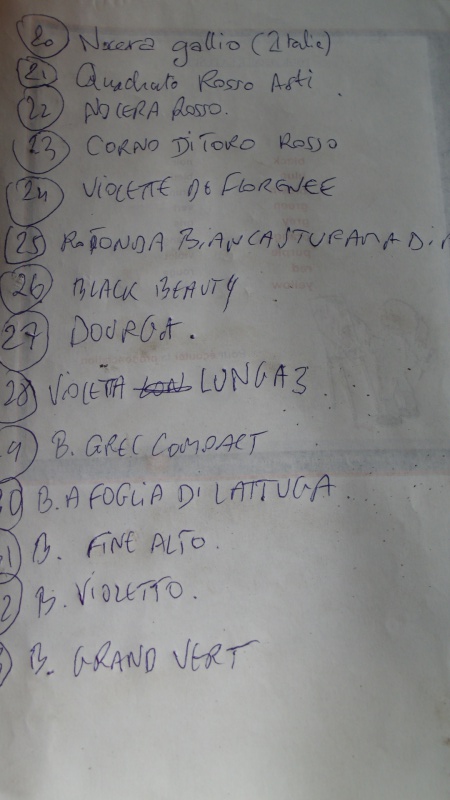 20 Nocera gallio (2 Italie)
21 Quadrato Rosso Asti
22 NOCERA ROSSO.
23 CORNO DI TORO ROSSO
24 VIOLETTE DE FLORENCE
25 ROTONDA BIANCA STUMATA DI
26 BLACK BEAUTY
27 DOURGA.
28 VIOLETTA LUNGA 3
9 B. GREC COMPACT
0 B. A FOGLIA DI LATTUGA.
1 B. FINE ALTO.
2 B. VIOLETTO.
3 B. GRAND VERT